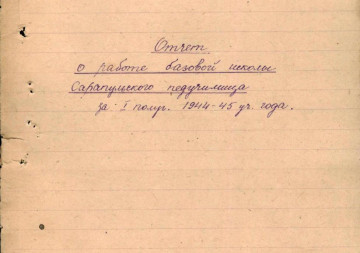 Отчет
о работе базовой школы
Сарапульского педучилища
за I полуг. 1944-45 уч. года.